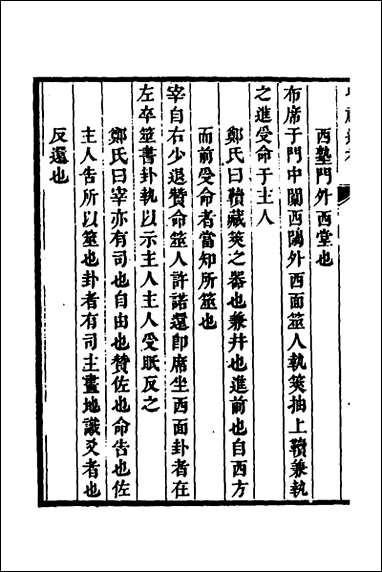 西塾門外西堂也
布席于門中闑西閾外西面筮人執筴抽上韇兼執
之進受命于主人
鄭氏曰韇藏筴之器也兼并也進前也自西方
而前受命者當知所筮也
宰自右少退贊命筮人許諾還卽席坐西面卦者在
左卒筮書卦執以示主人主人受眂反之
鄭氏曰宰亦有司也自由也贊佐也命告也佐
主人告所以筮也卦者有司主畫地識爻者也
反還也